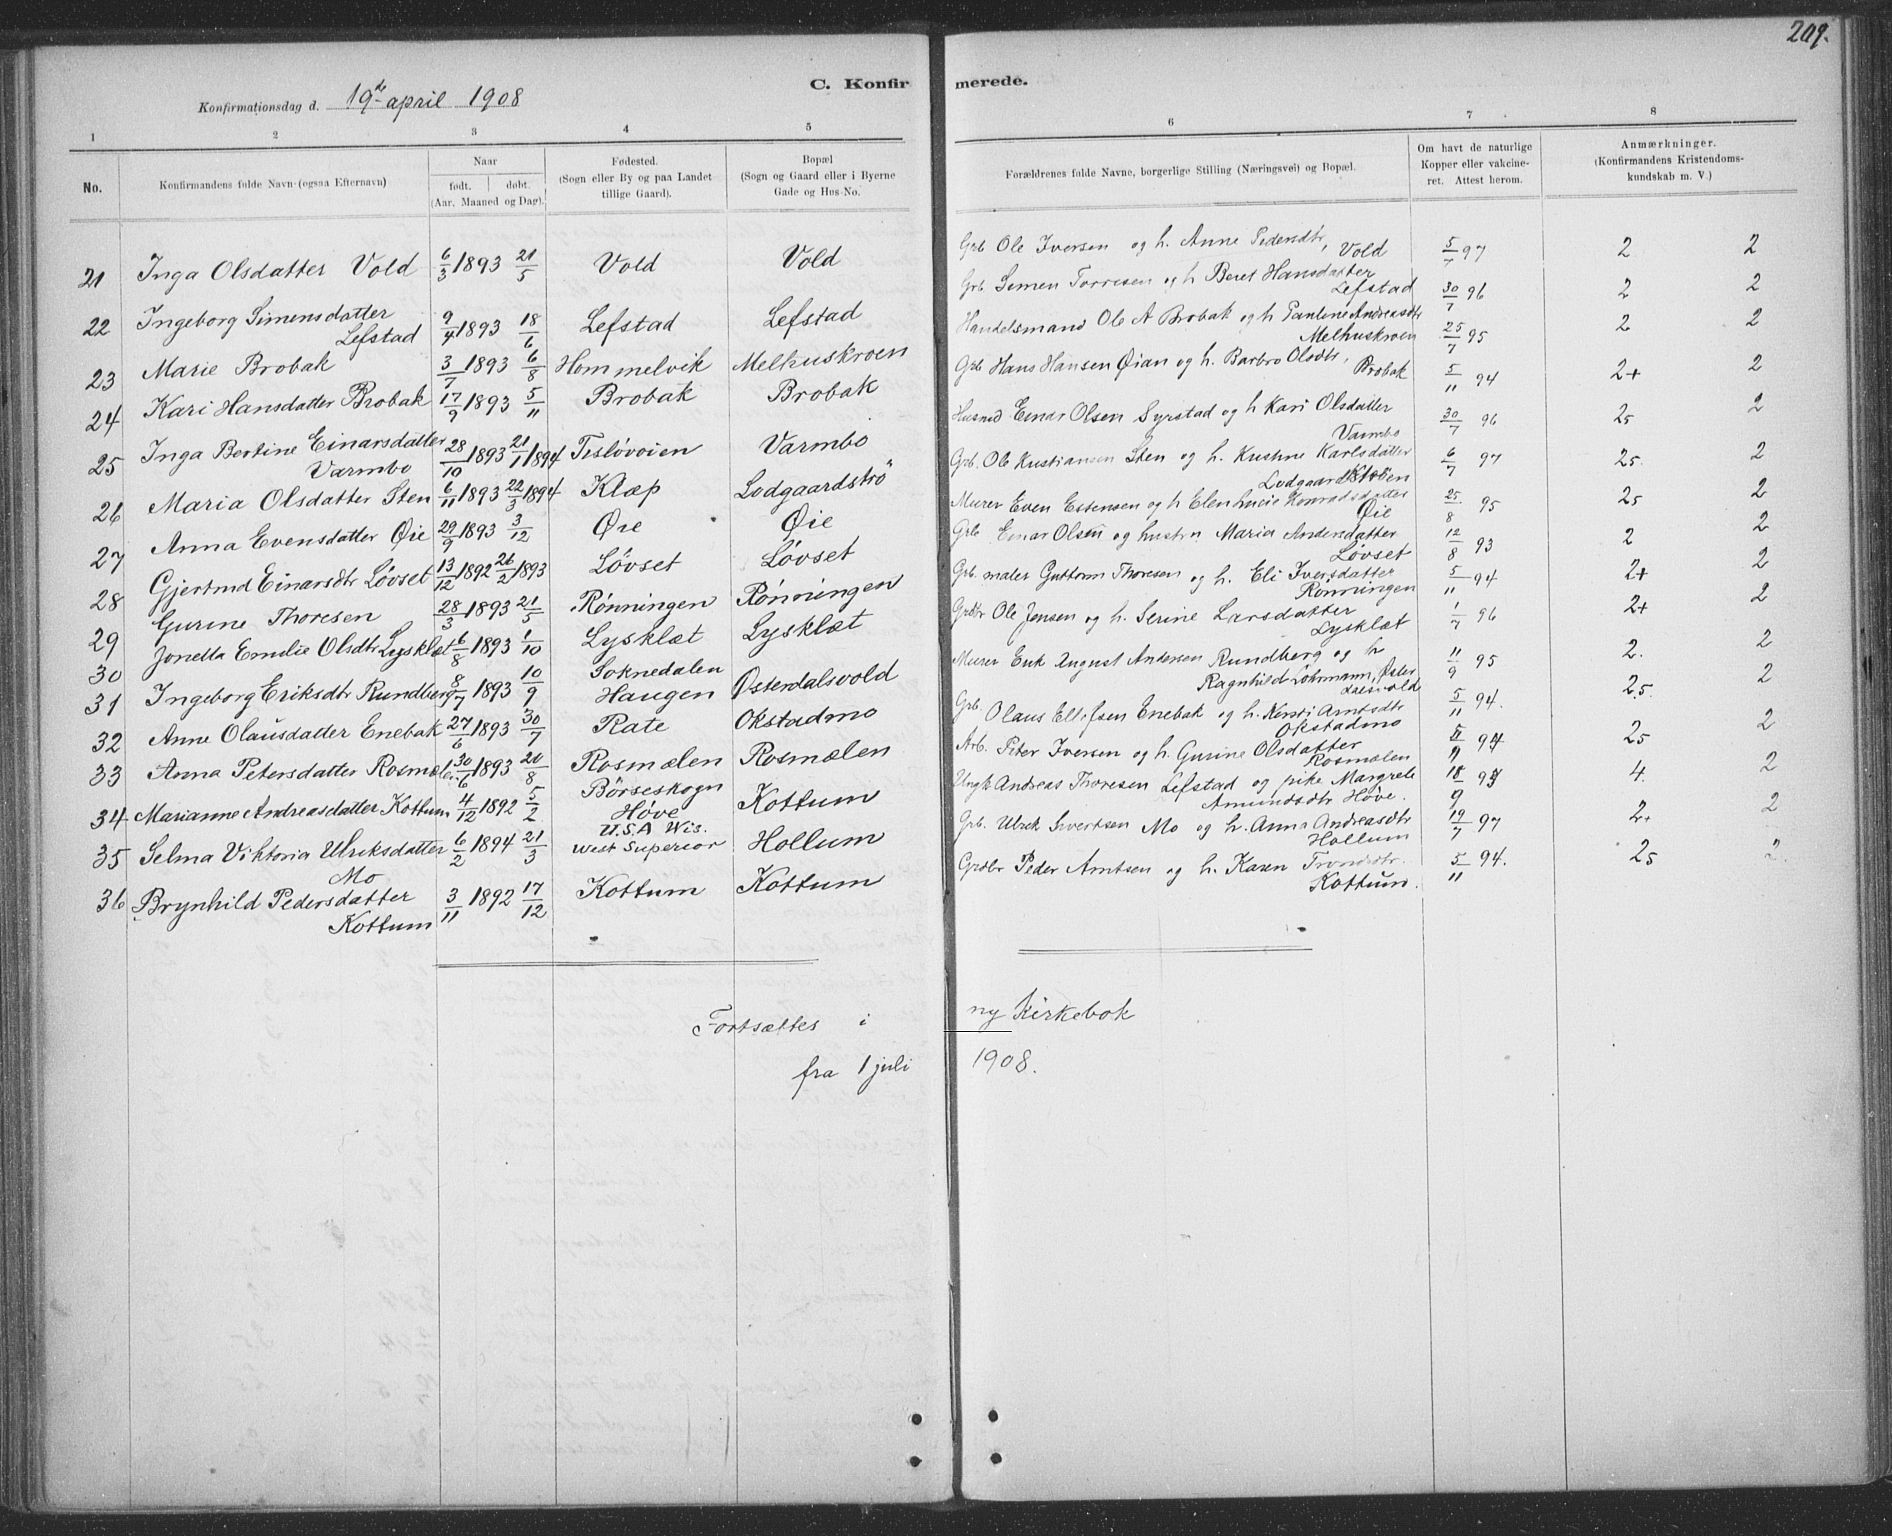 209.
C. Konfirmerede.
Konfirmationsdag d. 19de april 1908
1 2 3 4 5 6 7 8
No. | Konfirmandens fulde Navn (ogsaa Efternavn) | Naar født. døbt. (Aar, Maaned og Dag). | Fødested. (Sogn eller By og paa Landet tillige Gaard). | Bopæl (Sogn og Gaard eller i Byerne Gade og Hus-No. | Forældrenes fulde Navne, borgerlige Stilling (Næringsvei) og Bopæl. | Om havt de naturlige Kopper eller vakcineret. Attest herom. | Anmærkninger. (Konfirmandens Kristendomskundskab m. V.)
21 Inga Olsdatter Vold 6/3 1893 21/5 Vold Vold Grb Ole Iversen og h. Anne Pedersdtr, Vold 5/7 97 2 2
22 Ingeborg Simensdatter Lefstad 9/4 1893 18/6 Lefstad Lefstad Grb. Simen Torresen og h Beret Hansdatter Lefstad 30/7 96 2 2
23 Marie Brobak 3/7 1893 6/8 Hommelvik Melhuskroen Handelsmand Ole A Brobak og h Pauline Andreasdtr Melhuskroen 25/7 95 2 2
24 Kari Hansdatter Brobak 17/9 1893 5/11 Brobak Brobak Grb Hans Hansen Øian og h. Barbro Olsdtr, Brobak 5/11 94 2+ 2
25 Inga Bertine Einarsdatter Varmbo 28/10 1893 21/1 1894 Varmbo Husmd Einar Olsen Syrstad og h Kari Olsdatter Varmbo 30/7 96 25 2
26 Maria Olsdatter Sten 6/11 1893 22/3 1894 Klæp Lodgaardstrø Grb. Ole Kristiansen Sten og h. Karlsdatter 6/7 97 25. 2
27 Anna Evensdatter Øie 29/9 1893 3/12 Øie Øie Murer Even Estensen og h Øie 25/8 95 25 2
28 Gjertrud Einarsdtr Løvset 13/12 1892 26/2 1893 Løvset Løvset Grb Einar Olsen og hustru Maria Andersdatter Løvset 12/8 93 2 2
29 Gurine Thoresen 28/3 1893 21/5 Rønningen Rønningen Grb. maler Guttorm Thoresen og h. Eli Iversdatter Rønningen 5/11 94 2+ 2
30 Jonetta Emilie Olsdtr Lysklæt 6/8 1893 1/10 Lysklæt Lysklæt Grdbr Ole Jensen og h. Serine Larsdatter Lysklæt 1/7 96 2+ 2
31 Ingeborg Eriksdtr Rundberg 8/7 1893 10/9 Soknedalen Haugen Østerdalsvold Murer Erik August Andersen Rundberg og h Ragnhild Løhrmann, Øster 11/9 95 2. 2
32 Anne Olausdatter Enebak 27/6 1893 30/7 Rate Okstadmo Grb. Olaus Ellefsen Enebak og h. Kersti Arntsdtr Okstadmo 5/11 94. 2.5. 2
33 Anna Petersdatter Rosmælen 30/6 1893 20/8 Rosmælen Rosmælen Arb. Peter Iversen og h. Gurine Olsdatter Rosmælen 94 25 2
34 Marianne Andreasdatter Kottum 4/12 1892 5/2 Børseskogn Høve Kottum Ungk Andreas Thoresen Lefstad og pike Margrete Amundsdtr Høve. 18/9 4. 2
35 Selma Viktoria Ulriksdatter Mo 6/2 1894 21/3 U.S.A Wis. West Superior Hollum Grb. Ulrik Sivertsen Mo og h. Anna Andreasdtr Hollum 19/7 97 2+ 2
36 Brynhild Pedersdatter Kottum 3/11 1892 17/12 Kottum Kottum Grdbr Peder Arntsen og h. Karen Trondsdtr. Kottum. 5/11 94. 25 2.
Fortsættes i ny Kirkebok
fra 1 juli 1908.